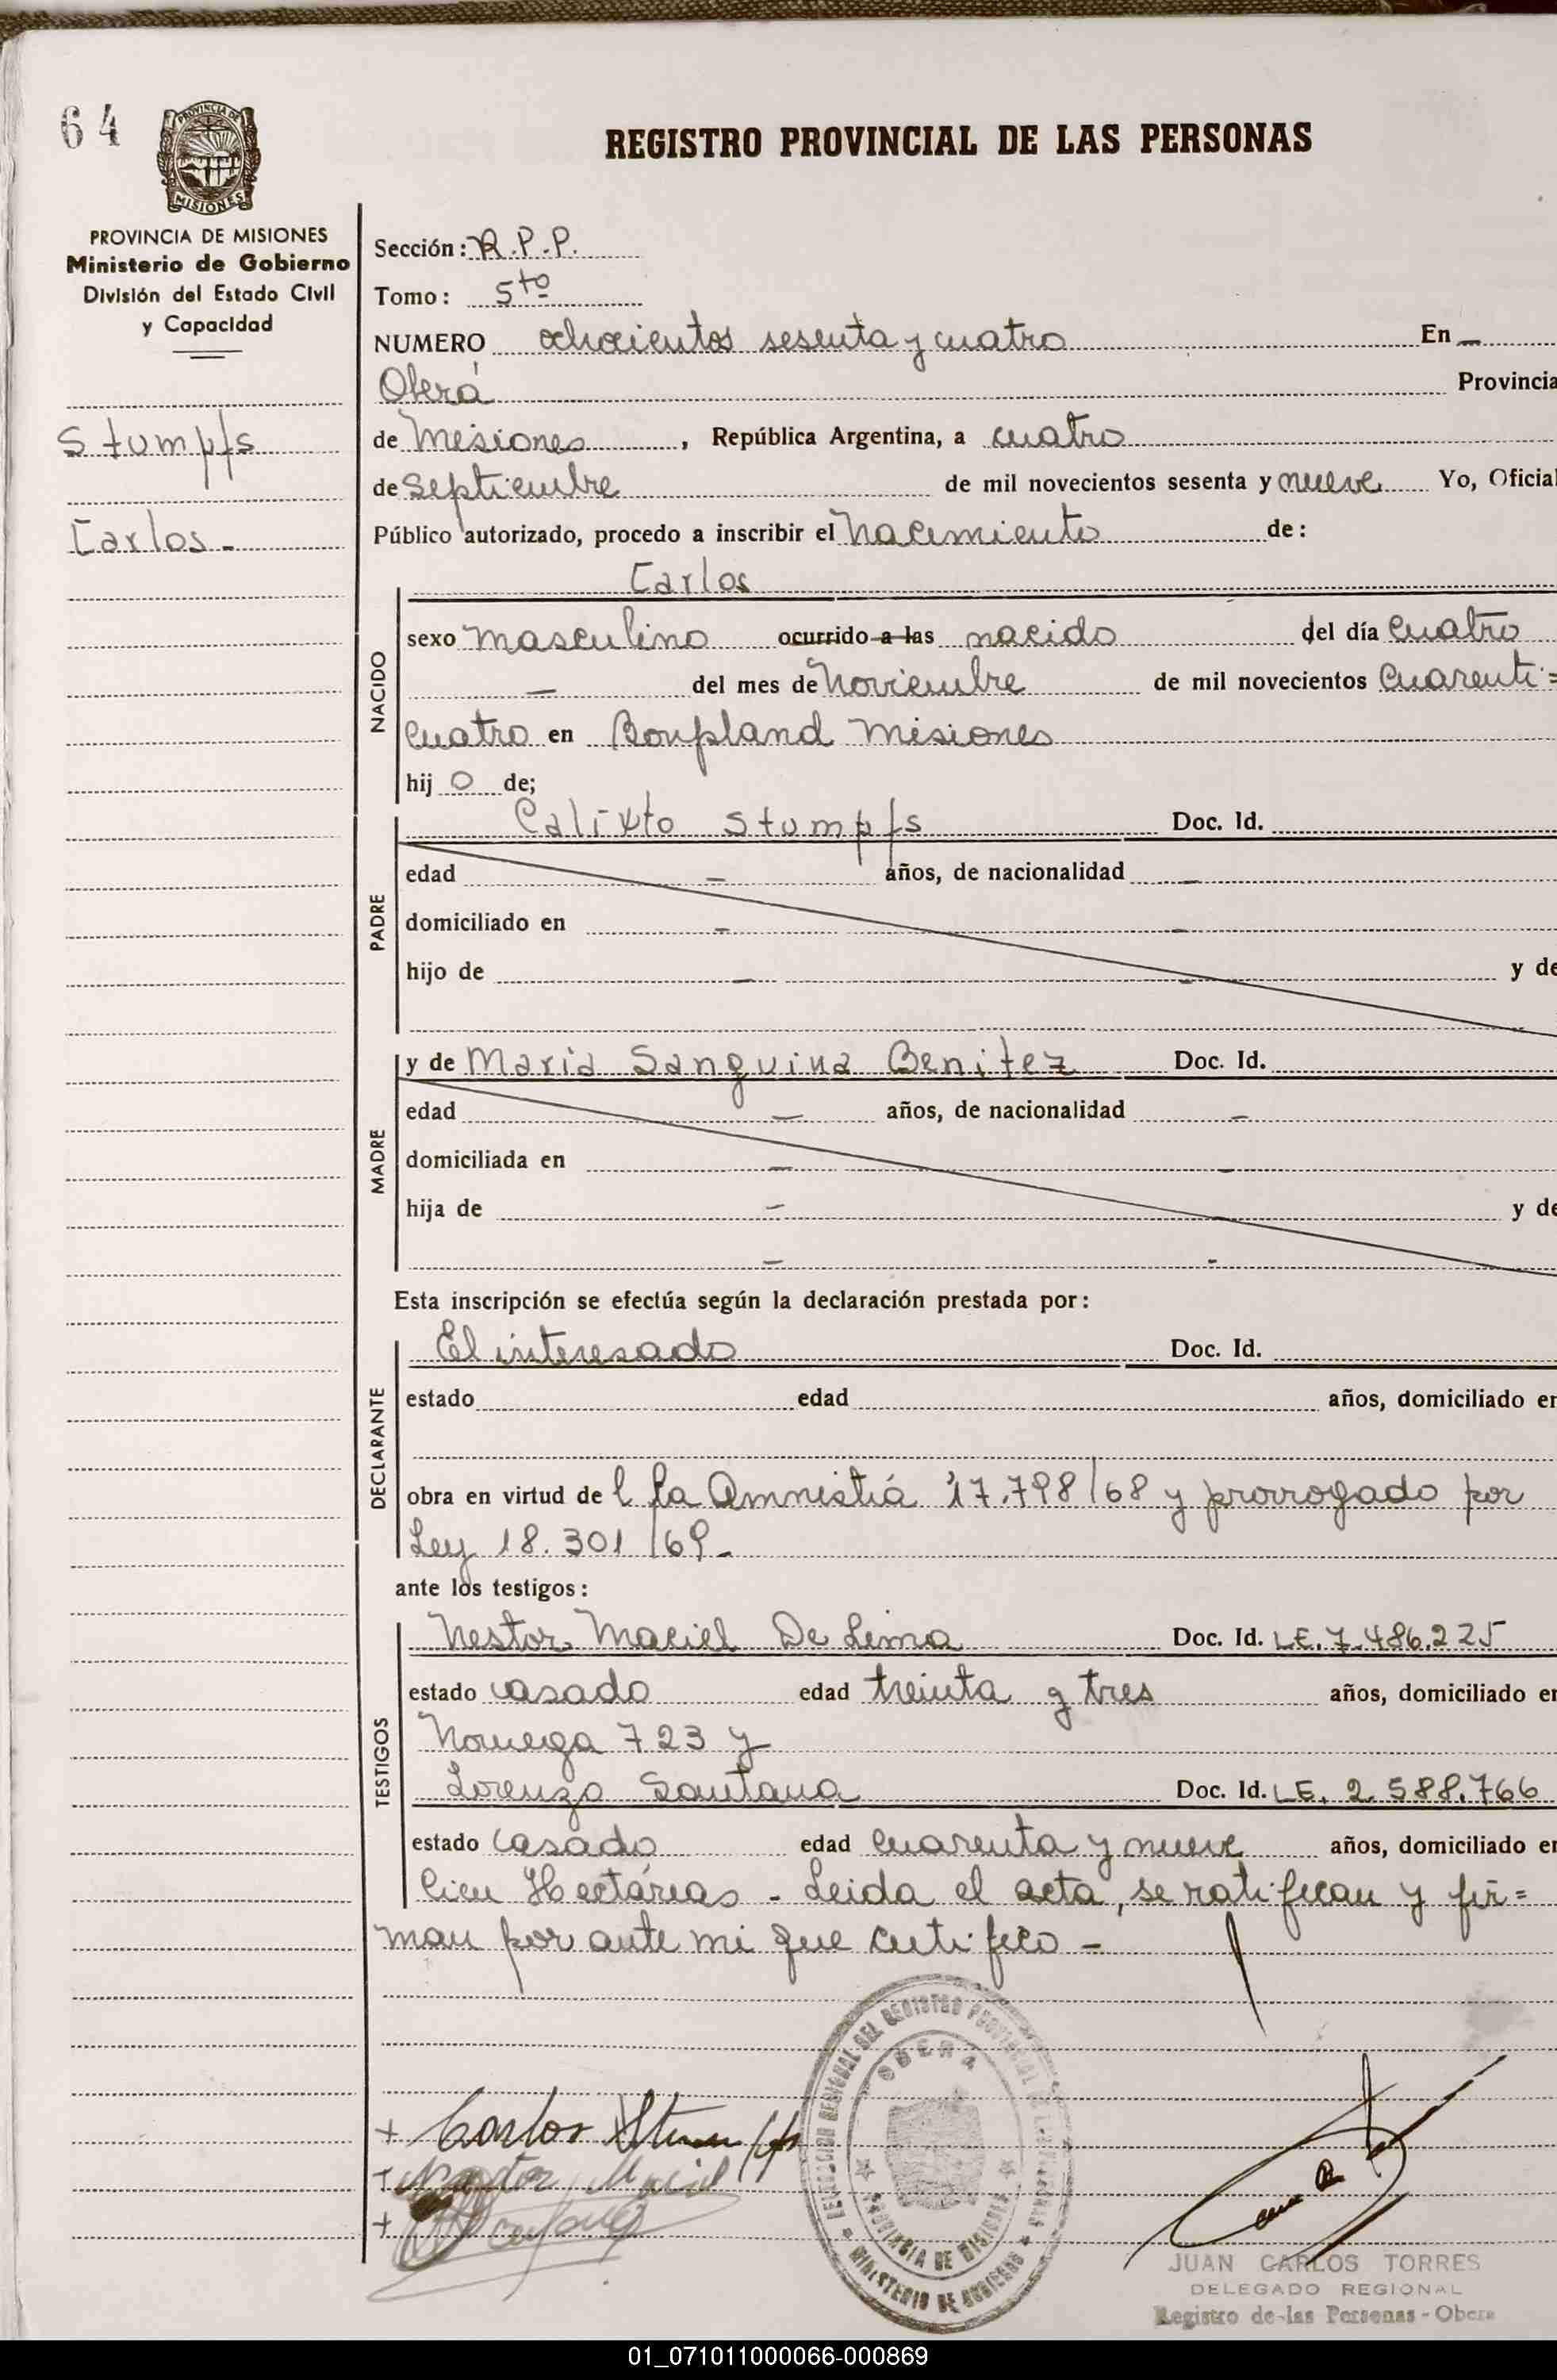 64
REGISTRO PROVINCIAL DE LAS PERSONAS
PROVINCIA DE MISIONES
Ministerio de Gobierno
División del Estado Civil
y Capacidad
Stumpfs
Carlos.-
Sección: R.P.P.
Tomo: 5to
NUMERO ochocientos sesenta y cuatro En -
Oberá Provincia
de Misiones, República Argentina, a cuatro
de Septiembre de mil novecientos sesenta y nueve Yo, Oficial
Público autorizado, procedo a inscribir el Nacimiento de:
Carlos
NACIDO
sexo masculino ocurrido a las nacido del día cuatro
- del mes de Noviembre de mil novecientos cuarenti=
cuatro en Bonpland Misiones
hij o de;
PADRE
Calixto Stumpfs Doc. Id.
edad - años, de nacionalidad -
domiciliado en - -
hijo de - - y de
MADRE
y de María Sanguina Benitez Doc. Id.
edad - años, de nacionalidad -
domiciliada en - -
hija de - y de
- -
Esta inscripción se efectúa según la declaración prestada por:
DECLARANTE
El interesado Doc. Id.
estado edad años, domiciliado en
obra en virtud de l la Amnistiá 17.798/68 y prorrogado por
Ley 18.301/69.-
ante los testigos:
TESTIGOS
Nestor Maciel De Lima Doc. Id. LE. 7.486.225
estado casado edad treinta y tres años, domiciliado en
Noruega 723 y
Lorenzo Santana Doc. Id. LE. 2.588.766
estado casado edad cuarenta y nueve años, domiciliado en
Cien Hectáreas - Leida el acta, se ratifican y fir=
man por ante mi que certifico -
+ Carlos Stumpfs
+ Nestor Maciel
+
DELEGACION REGIONAL DEL REGISTRO PROVINCIAL DE LAS PERSONAS
OBERA
PROVINCIA DE MISIONES
MINISTERIO DE GOBIERNO
JUAN CARLOS TORRES
DELEGADO REGIONAL
Registro de las Personas - Obera
01_071011000066-000869